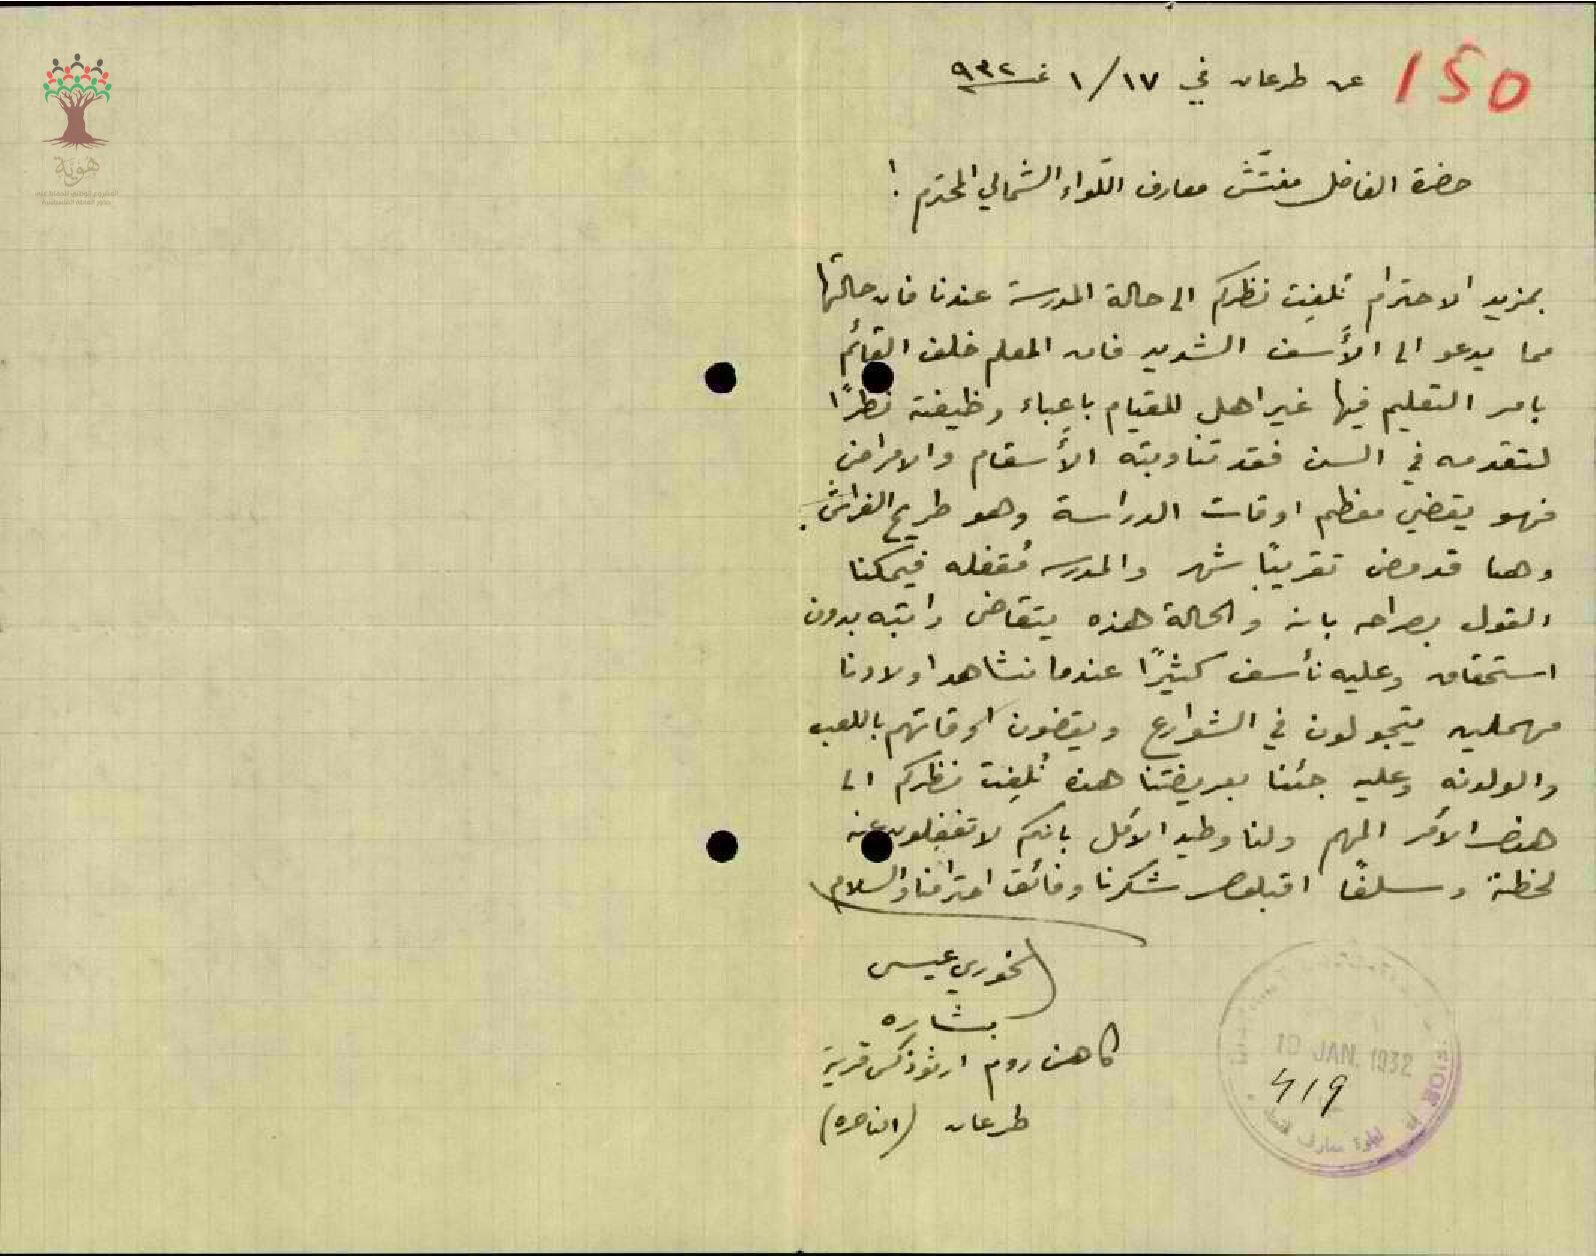 150
عن طرعان في ١٧/١ غـ ٩٣٢
حضرة الفاضل مفتّش معارف اللّواء الشمالي المحترم !
بمزيد الاحترام نُلفِت نظركم الى حالة المدرسة عندنا فان حالتها
مما يدعو الى الأَسف الشديد فان المعلم خلف القائم
بامر التعليم فيها غير اهل للقيام باعباء وظيفته نظرًا
لتقدمه في السن فقد تناوبته الأَسقام والامراض
فهو يقضي معظم اوقات الدراسة وهو طريح الفراش.
وهنا قد مضى تقريبًا شهر والمدرسه مُقفله فيمكننا
القول بصراحه بانه والحالة هذه يتقاضى راتبه بدون
استحقاق وعليه نأسف كثيرًا عندما نشاهد اولادنا
مهملين يتجولون في الشوارع ويقضون اوقاتهم باللعب
والولدنه وعليه جئنا بعريضتنا هذه نُلفِت نظركم الى
هذا الأمر المهم ولنا وطيد الأمل بانكم لا تغفلون عنه
لحظة وسلفًا اقبلوا شكرنا وفائق احترامنا والسلام
الخوري عيسى
بشاره
كاهن روم ارثوذكس قرية
طرعان (الناصره)
10 JAN. 1932
419
هوية